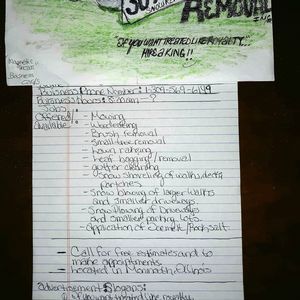 REMOVAL
INC.
IF YOU WANT TREATED LIKE ROYALTY...
HIRE A KING!!
Magnetic
Business
Cards
Business Phone Number: 1-309-569-6149
Business hours: 8am - ?
Jobs
Offered/
Available:
- Mowing
- Weedeating
- Brush removal
- Small tree removal
- Lawn raking
- Leaf bagging/removal
- gutter cleaning
- Snow shoveling of walks, decks,
porches
- Snow blowing of larger walks
and smaller driveways
- Snow plowing of Driveways
and smaller parking lots
- Application of Icemelt/Rocksalt
- Call for free estimates and to
make appointments
- Located in Monmouth, Illinois
Advertisement Slogans:
If you want treated like royalty